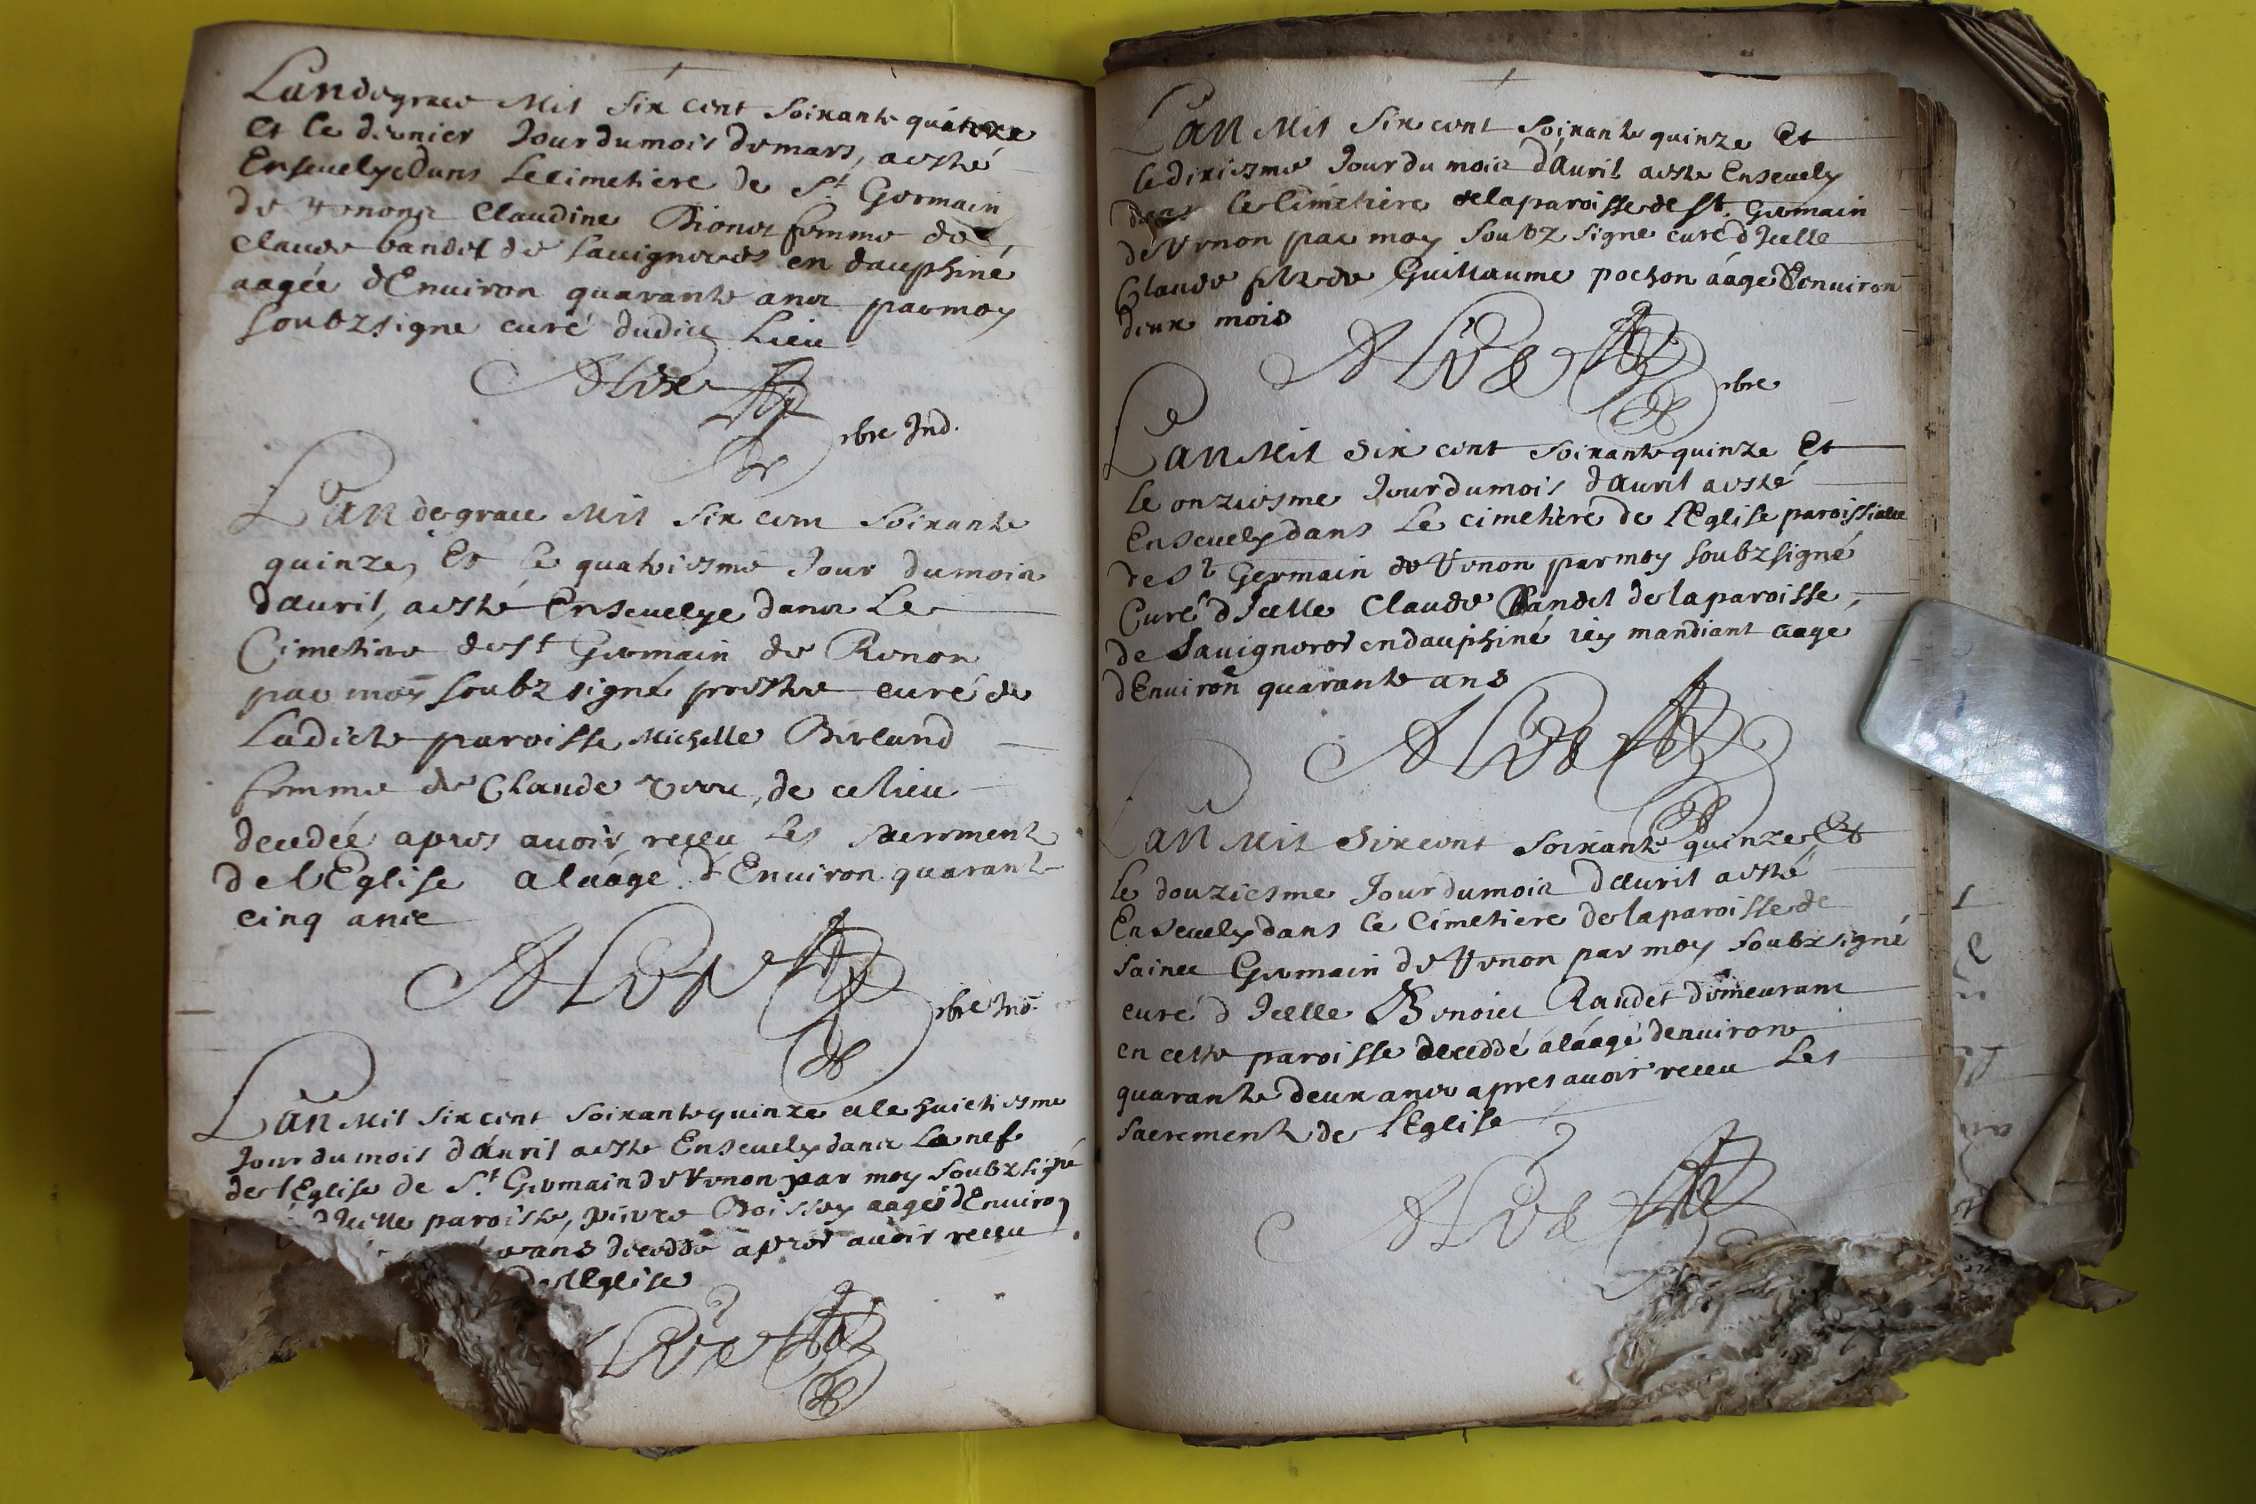 Lan de grace Mil Six cent Soixante quatorze
Et le dernier Jour du mois de mars, a esté
Ensevelye dans Le cimetiere de St Germain
de Venon Claudine femme de
Claude bandet de Sauigneres en dauphiné
aagée d'Enuiron quarante ans par moy
soubzsigne curé dudict Lieu
Alix
pbre Ind.
Lan de grace Mil Six cent Soixante
quinze, Et Le quatriesme Jour du mois
dauril, a esté Enseuelye dans Le
Cimetiere de st Germain de Renon
par moy soubzsigné prestre curé de
Ladicte paroisse Michelle Berland
femme de Claude de ce lieu
decedée apres auoir receu Les sacrement
de l'Eglise a l aage d'Enuiron quarante
cinq ans
Alix
pbre Ind.
Lan Mil Six cent Soixante quinze et le huictiesme
Jour du mois d'Auril a esté Enseuely dans La nef
de l'Eglise de St. Germain de Venon par moy soubzsigné
d Icelle paroisse, pierre Boissey aagé d'Enuiron
ans decedde apres auoir receu
de l'Eglise
Lan Mil Six cent Soixante quinze Et
le dixiesme Jour du mois d'Auril a esté Enseuely
dans le Cimetiere de la paroisse de St. Germain
de Venon par moy soubz signe curé d Icelle
Claude filz de Guillaume pochon aagé d'enuiron
deux mois
Alix
pbre
Lan Mil Six cent Soixante quinze Et
Le onziesme Jour du mois d'auril a esté
Enseuely dans Le cimetiere de l'Eglise paroissialle
de St Germain de Venon par moy soubzsigné
Curé d Icelle Claude Bandet de la paroisse
de Sauigneres en dauphiné icy mandiant aage
d'Enuiron quarante ans
Alix
Lan Mil Six cent Soixante quinze, Et
le douziesme Jour du mois d'auril a esté
Enseuely dans Le Cimetiere de la paroisse de
sainct Germain de Venon par moy soubzsigné
curé d Icelle Benoict Raudet demeurant
en cette paroisse decedde a l aage d'enuiron
quarante deux ans apres auoir receu Les
sacrement de l'Eglise
Alix